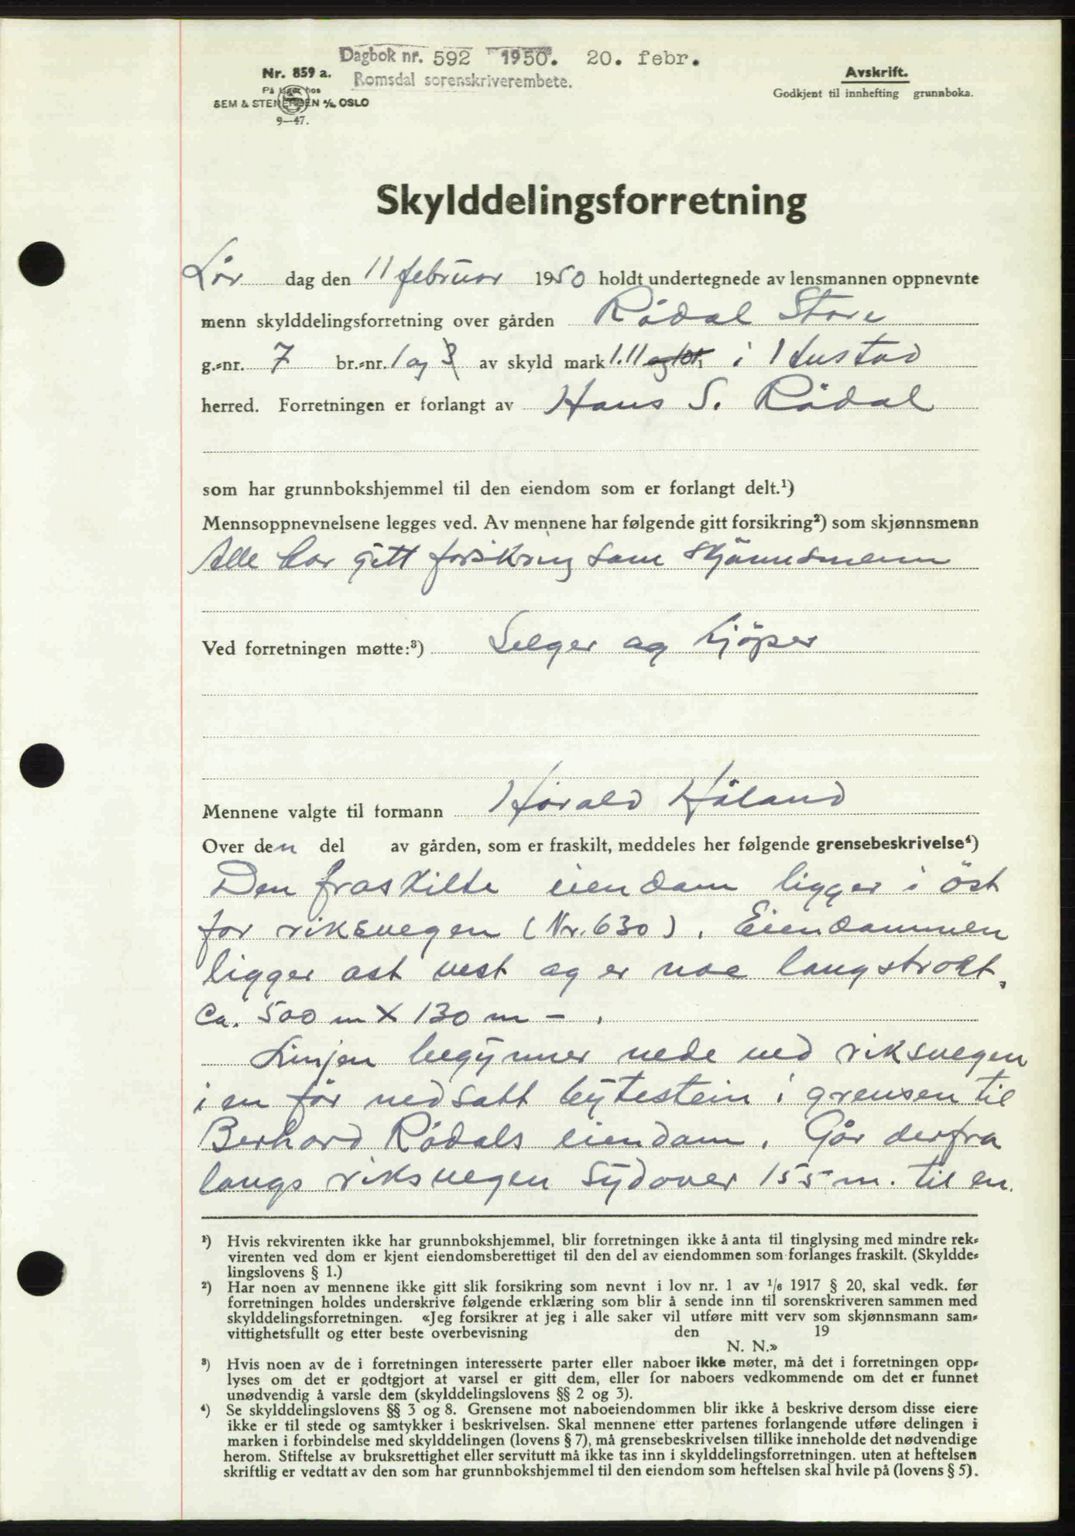 Dagbok nr. 592 1950. 20. febr.
Romsdal sorenskriverembete.
Nr. 859 a.
På lager hos
SEM & STENERSEN A/S, OSLO
9—47.
Avskrift.
Godkjent til innhefting grunnboka.
Skylddelingsforretning
Lør dag den 11 februar 1950 holdt undertegnede av lensmannen oppnevnte
menn skylddelingsforretning over gården Rødal Store
g.-nr. 7 br.-nr. 1 og 3 av skyld mark 1.11 i Hustad
herred. Forretningen er forlangt av Hans S. Rødal
som har grunnbokshjemmel til den eiendom som er forlangt delt.¹)
Mennsoppnevnelsene legges ved. Av mennene har følgende gitt forsikring²) som skjønnsmenn
Alle har gitt forsikring som skjønnsmenn
Ved forretningen møtte:³) Selger og kjøper
Mennene valgte til formann Harald Håland
Over den del av gården, som er fraskilt, meddeles her følgende grensebeskrivelse⁴)
Den fraskilte eiendom ligger i øst
for riksvegen (Nr. 630). Eiendommen
ligger ost vest og er noe langstrakt,
ca. 500 m X 130 m – .
Linjen begynner nede ved riksvegen
i en før nedsatt bytestein i grensen til
Berhard Rødals eiendom. Går derfra
langs riksvegen sydover 155 m. til en
¹) Hvis rekvirenten ikke har grunnbokshjemmel, blir forretningen ikke å anta til tinglysing med mindre rek-
virenten ved dom er kjent eiendomsberettiget til den del av eiendommen som forlanges fraskilt. (Skyldde-
lingslovens § 1.)
²) Har noen av mennene ikke gitt slik forsikring som nevnt i lov nr. 1 av 1/6 1917 § 20, skal vedk. før
forretningen holdes underskrive følgende erklæring som blir å sende inn til sorenskriveren sammen med
skylddelingsforretningen. «Jeg forsikrer at jeg i alle saker vil utføre mitt verv som skjønnsmann sam-
vittighetsfullt og etter beste overbevisning den 19
N. N.»
³) Hvis noen av de i forretningen interesserte parter eller naboer ikke møter, må det i forretningen opp-
lyses om det er godtgjort at varsel er gitt dem, eller for naboers vedkommende om det er funnet
unødvendig å varsle dem (skylddelingslovens §§ 2 og 3).
⁴) Se skylddelingslovens §§ 3 og 8. Grensene mot naboeiendommen blir ikke å beskrive dersom disse eiere
ikke er til stede og samtykker i beskrivelsen. Skal mennene etter partenes forlangende utføre delingen i
marken i forbindelse med skylddelingen (lovens § 7), må grensebeskrivelsen tillike inneholde det nødvendige
herom. Stiftelse av bruksrettighet eller servitutt må ikke tas inn i skylddelingsforretningen. uten at heftelsen
skriftlig er vedtatt av den som har grunnbokshjemmel til den eiendom som heftelsen skal hvile på (lovens § 5).